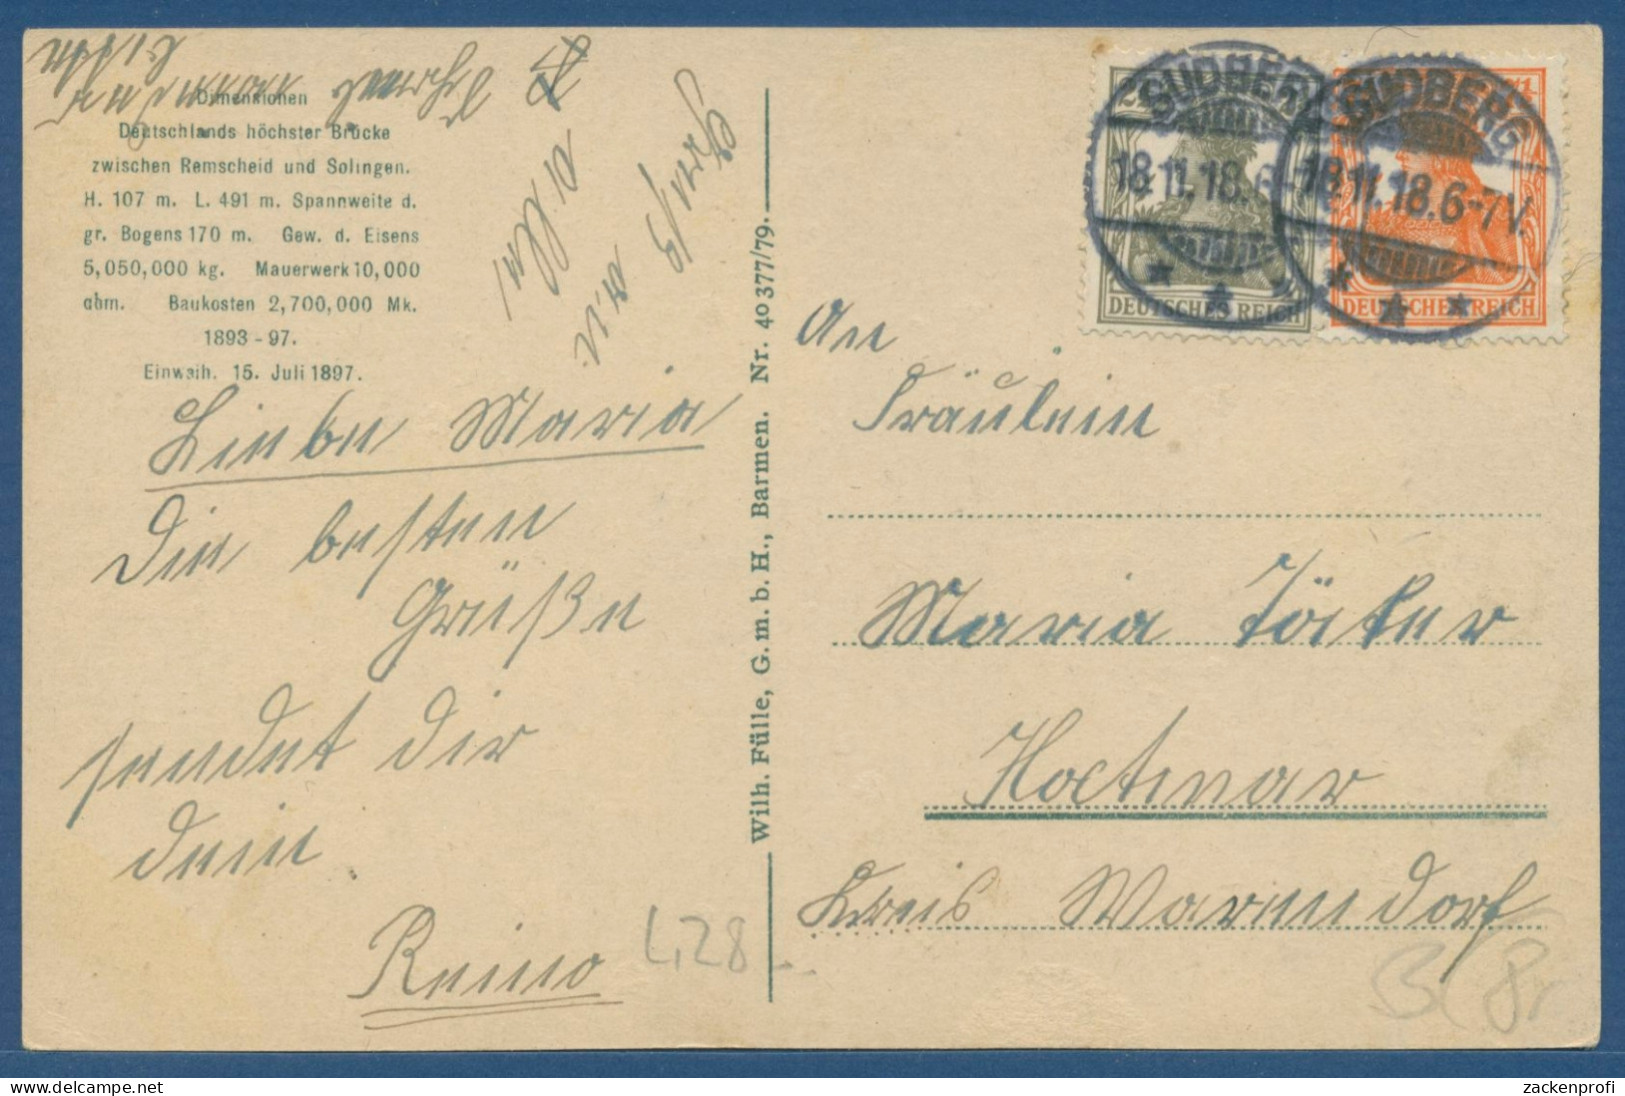 Dimensionen
Deutschlands höchster Brücke
zwischen Remscheid und Solingen.
H. 107 m. L. 491 m. Spannweite d.
gr. Bogens 170 m. Gew. d. Eisens
5,050,000 kg. Mauerwerk 10,000
cbm. Baukosten 2,700,000 Mk.
1893-97.
Einweih. 15. Juli 1897.
Liebe Maria
Die besten
Grüße
sendet dir
dein
Reino
4,28
Gruß
an
alle!
Wilh. Fülle, G. m. b. H., Barmen. Nr. 40377/79.
SUDBERG
18.11.18.6-
SUDBERG
18.11.18.6-7V.
DEUTSCHES REICH
DEUTSCHES REICH
An
Fräulein
Maria
Hoetmar
Kreis Warendorf
zackenprofi
www.delcampe.net